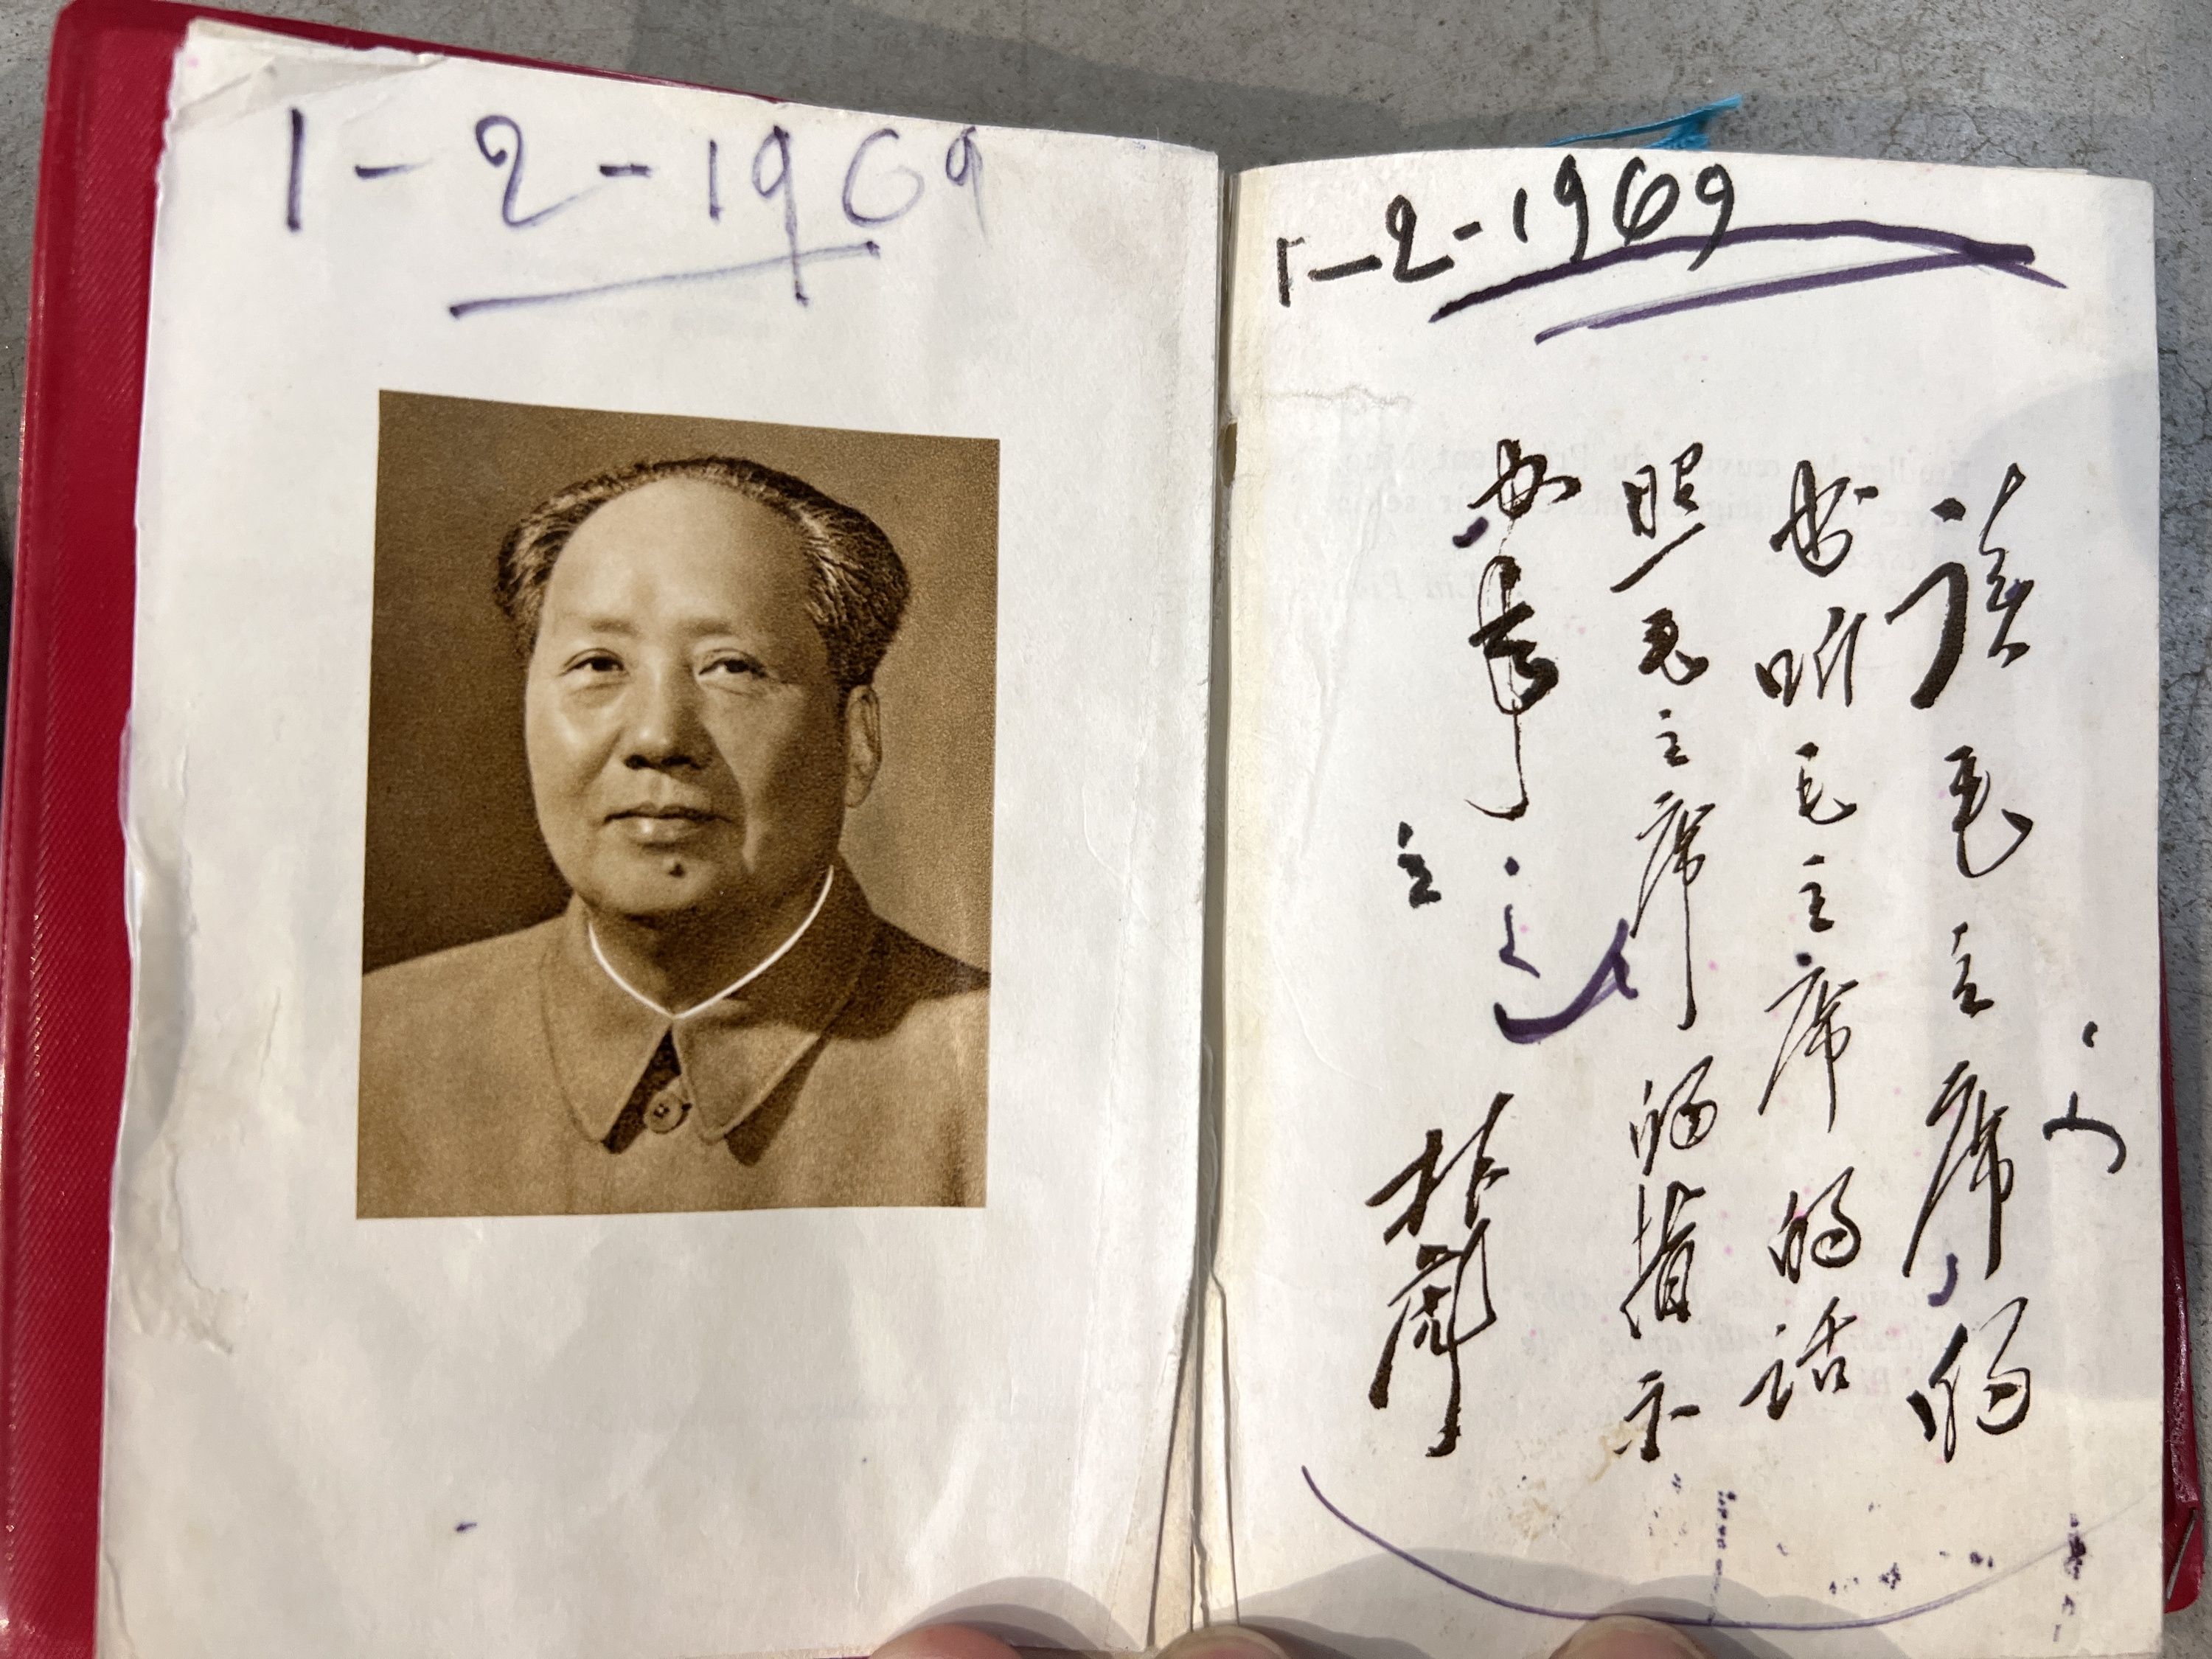 1-2-1969
1-2-1969
读毛主席的
书听毛主席的话
照毛主席的指示
办事
林彪